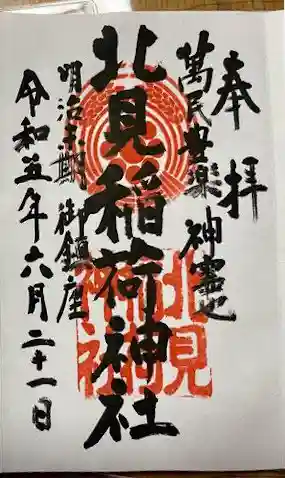 奉拝
萬民豊楽 神霊
北見稲荷神社
明治末期 御鎮座
令和五年六月二十一日
北見
稲荷
神社